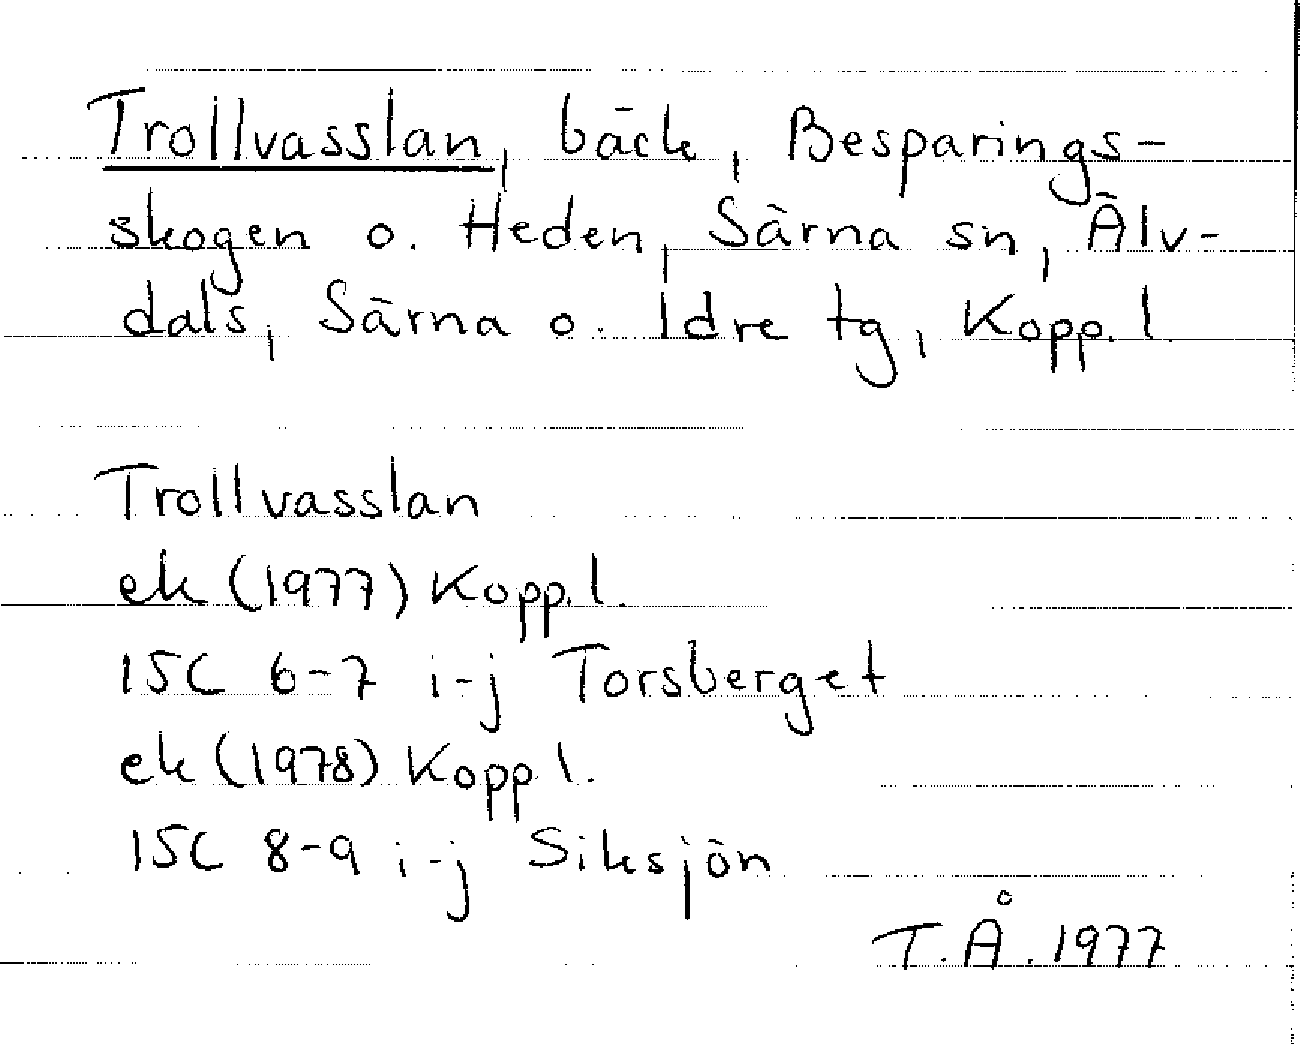 Trollvasslan, bäck, Besparings-
skogen o. Heden, Särna sn, Älv-
dals, Särna o. Idre tg, Kopp. l.
Trollvasslan
ek (1977) Kopp. l.
15C 6-7 i-j Torsberget
ek (1978) Kopp l.
15C 8-9 i-j Siksjön
T.Å. 1977